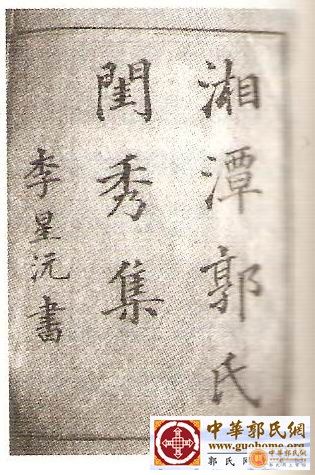 湘潭郭氏
閨秀集
李星沅書
中華郭氏網
www.guohome.org
郭氏网
中華郭氏網